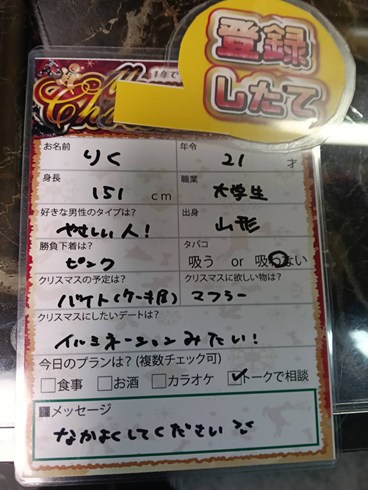 登録
したて
1年で
お名前 りく 年令 21 才
身長 151 cm 職業 大学生
好きな男性のタイプは? やさしい人! 出身 山形
勝負下着は? ピンク タバコ 吸う or 吸わない
クリスマスの予定は? バイト(ケーキ屋) クリスマスに欲しい物は? マフラー
クリスマスにしたいデートは?
イルミネーションみたい!
今日のプランは? (複数チェック可)
食事 お酒 カラオケ トークで相談
メッセージ
なかよくしてください